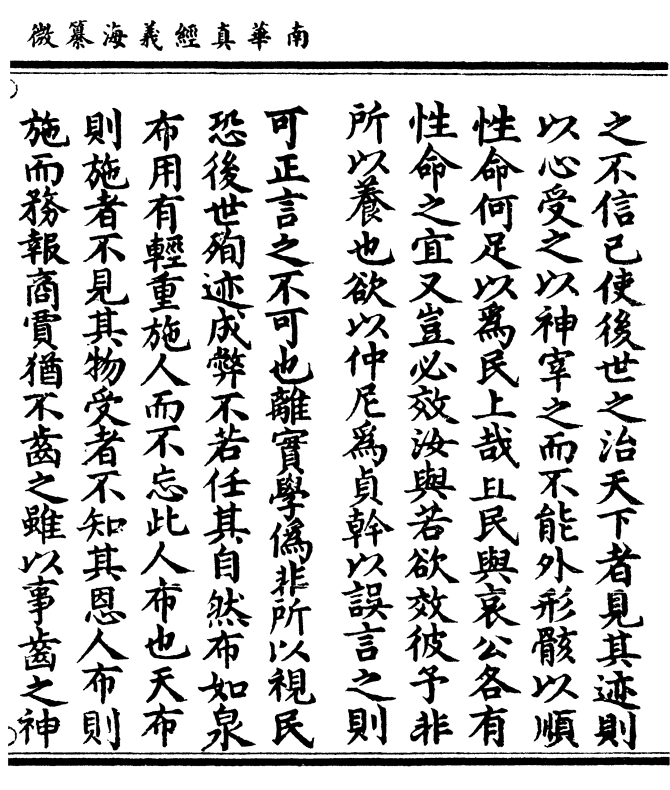 南華真經義海纂微
之不信已使後世之治天下者見其迹則
以心受之以神宰之而不能外形骸以順
性命何足以爲民上哉且民與哀公各有
性命之宜又豈必效汝與若欲效彼予非
所以養也欲以仲尼爲貞幹以誤言之則
可正言之不可也離實學僞非所以視民
恐後世殉迹成弊不若任其自然布如泉
布用有輕重施人而不忘此人布也天布
則施者不見其物受者不知其恩人布則
施而務報商賈猶不齒之雖以事齒之神